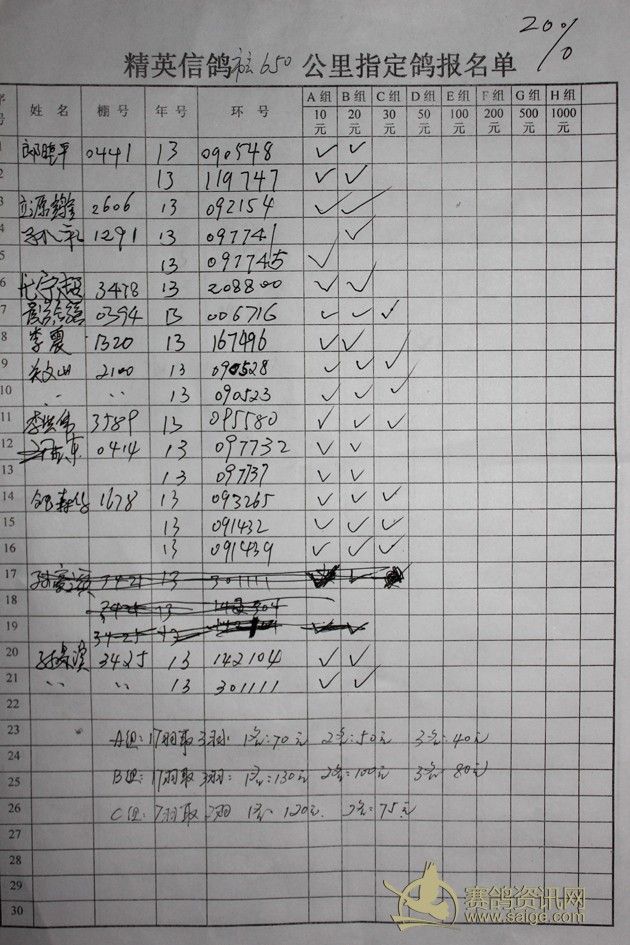 20%
精英信鸽 650 公里指定鸽报名单
序号 姓名 棚号 年号 环号 A组 B组 C组 D组 E组 F组 G组 H组
10元 20元 30元 50元 100元 200元 500元 1000元
1 0441 13 090548 ✓ ✓
2 13 119747 ✓ ✓
3 2606 13 092154 ✓ ✓
4 1291 13 097741 ✓
5 13 097745 ✓
6 3478 13 208800 ✓ ✓
7 0394 13 006716 ✓ ✓ ✓
8 李震 1320 13 167496 ✓ ✓
9 2100 13 090528 ✓ ✓ ✓
10 〃 〃 13 090523 ✓ ✓ ✓
11 3589 13 095580 ✓ ✓ ✓
12 0414 13 097732 ✓ ✓
13 13 097737 ✓ ✓
14 1678 13 093265 ✓ ✓ ✓
15 13 091432 ✓ ✓ ✓
16 13 091439 ✓ ✓ ✓
17 3421 13 301111
18 3425 13
19 3425 13
20 3425 13 142104 ✓ ✓
21 〃 〃 13 301111 ✓ ✓
22
23 A组:17羽取3羽: 1名:70元 2名:50元 3名:40元
24
25 B组:17羽取3羽: 1名:130元 2名:100元 3名:80元
26 C组:7羽取2羽 1名:120元. 2名:75元
27
28
29
30
赛鸽资讯网
www.saige.com